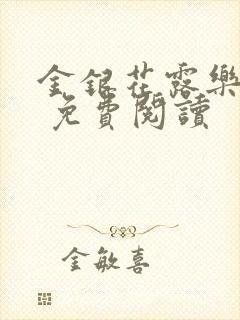 金銀花露樂
免費閱讀
金敏喜